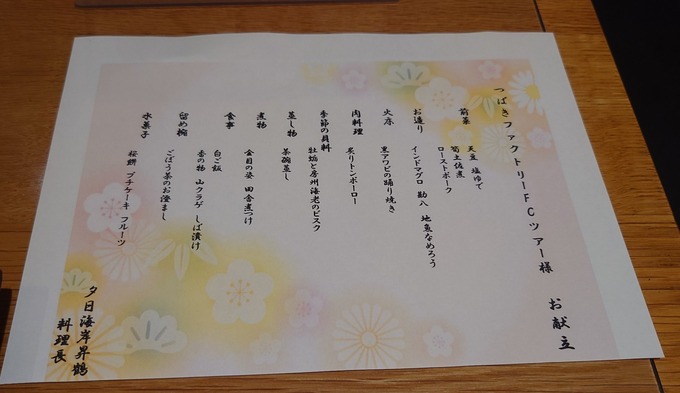 つばきファクトリーFCツアー様 お献立
前菜 天豆 塩ゆで
筍土佐煮
ローストポーク
お造り インドマグロ 勘八 地魚なめろう
火床 黒アワビの踊り焼き
肉料理 炙りトンポーロー
季節の具料 牡蛎と房州海老のビスク
蒸し物 茶碗蒸し
煮物 金目の姿 田舎煮つけ
食事 白ご飯
香の物 山クラゲ しば漬け
留め椀 ごぼう茶のお澄まし
水菓子 桜餅 プチケーキ フルーツ
夕日海岸昇鶴
料理長